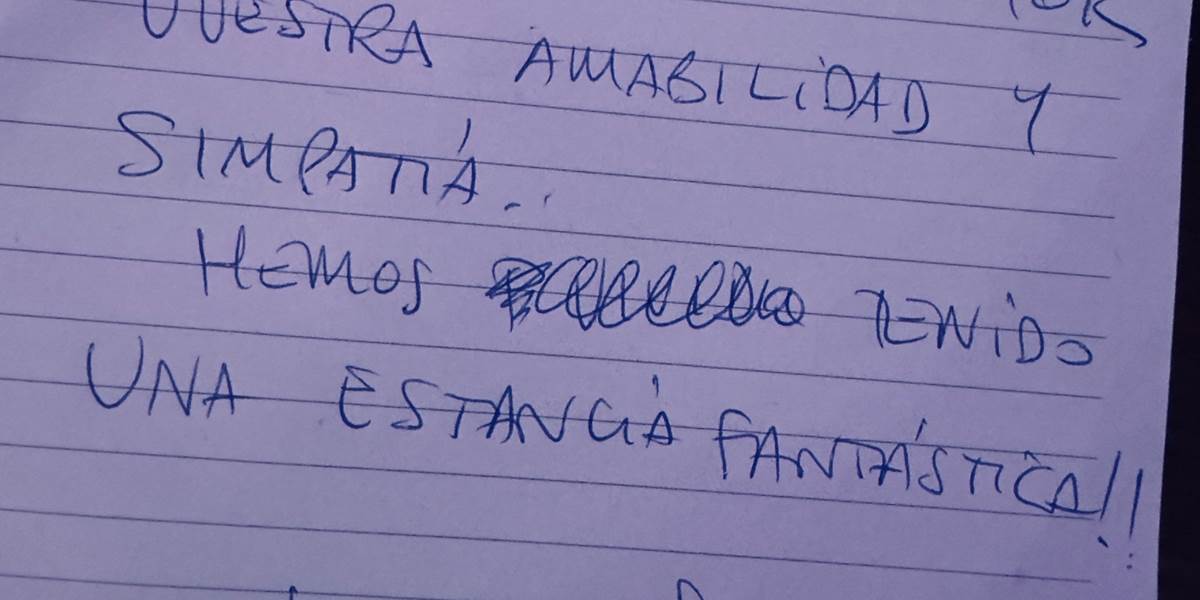 VUESTRA AMABILIDAD Y
SIMPATÍA..
HEMOS TENIDO
UNA ESTANCIÁ FANTÁSTICA!!